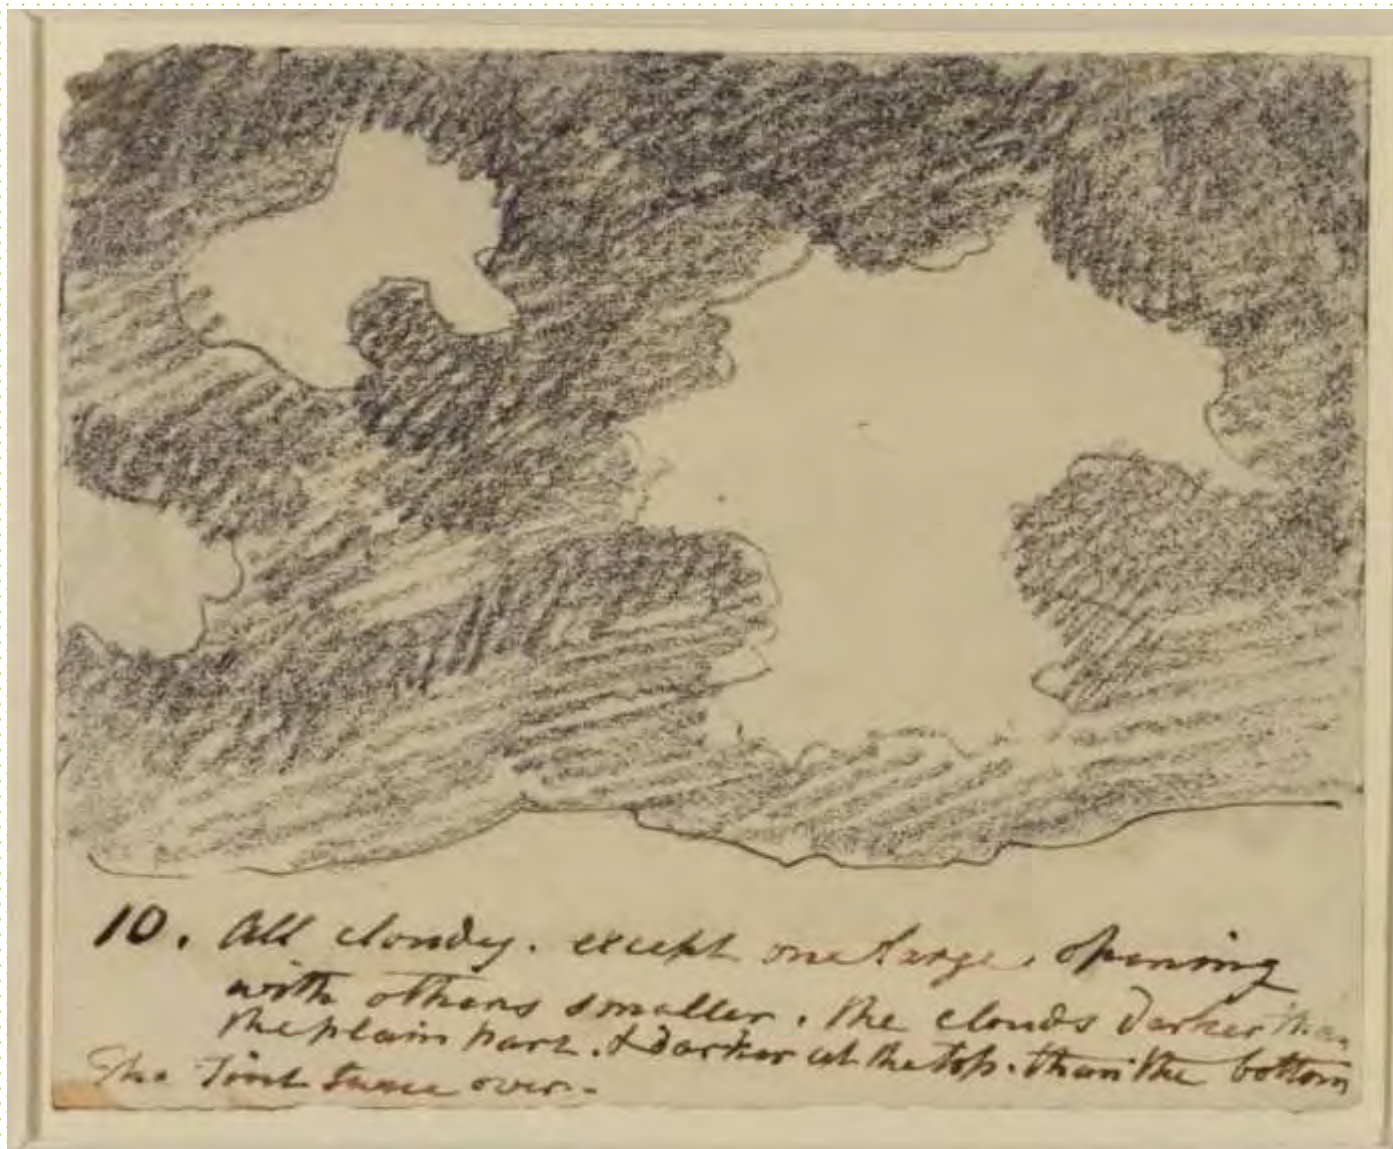 10. All cloudy. except one large. opening
with others smaller. the clouds darker than
the plain part. & darker at the top. than the bottom
The Tint twice over.